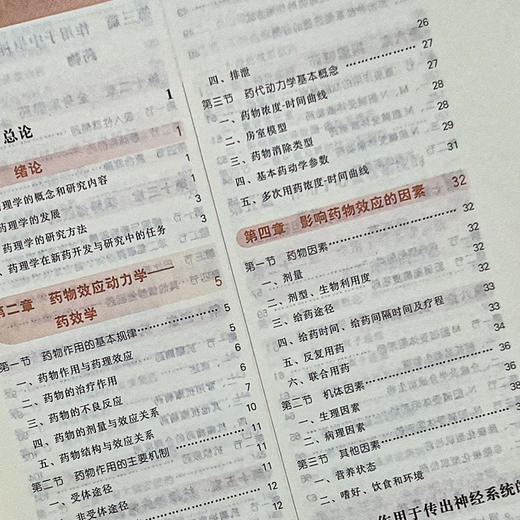 总论 1
绪论 1
理学的概念和研究内容 1
药理学的发展 1
药理学的研究方法 3
药理学在新药开发与研究中的任务 3
第二章 药物效应动力学——
药效学 5
第一节 药物作用的基本规律 5
一、药物作用与药理效应 5
二、药物的治疗作用 6
三、药物的不良反应 6
四、药物的剂量与效应关系 7
五、药物结构与效应关系 10
第二节 药物作用的主要机制 11
一、受体途径 12
非受体途径 12
四、排泄 26
第三节 药代动力学基本概念 27
一、药物浓度-时间曲线 27
二、房室模型 28
三、药物消除类型 28
四、基本药动学参数 29
五、多次用药浓度-时间曲线 31
第四章 影响药物效应的因素 32
第一节 药物因素 32
一、剂量 32
二、剂型、生物利用度 32
三、给药途径 32
四、给药时间、给药间隔时间及疗程
五、反复用药
六、联合用药
第二节 机体因素
一、生理因素
二、病理因素
第三节 其他因素
一、营养状态
二、嗜好、饮食和环境
作用于传出神经系统的